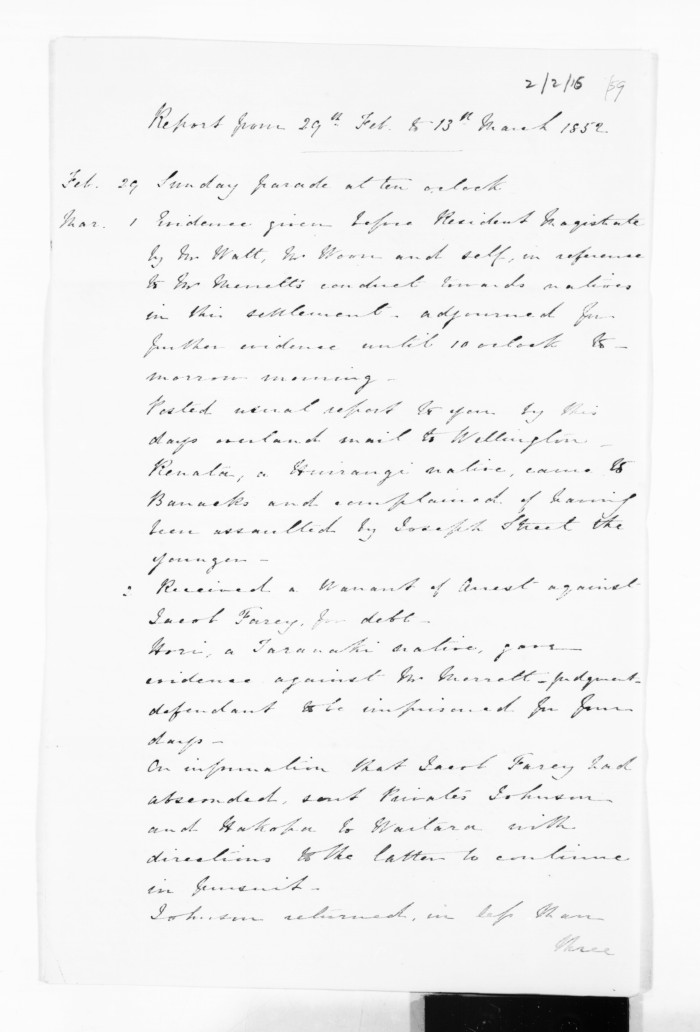 2/2/16 159
Report from 29th Feb. to 13th March 1852
Feb. 29 Sunday parade at ten o'clock
Mar. 1 Evidence given before Resident Magistrate
by Mr Watt, Mr Woon and self, in reference
to Mr Merrett's conduct towards natives
in this settlement - adjourned for
further evidence until 10 o'clock to-
morrow morning -
Posted usual report to you by this
days overland mail to Wellington -
Renata, a Huirangi native, came to
Barracks and complained of having
been assaulted by Joseph Street the
younger -
2 Received a Warrant of Arrest against
Jacob Farey, for debt -
Hori, a Taranaki native, gave
evidence against Mr Merrett - judgment -
defendant to be imprisoned for four
days -
On information that Jacob Farey had
absconded, sent Privates Johnson
and Hakopa to Waitara with
directions to the latter to continue
in pursuit -
Johnson returned, in less than
three